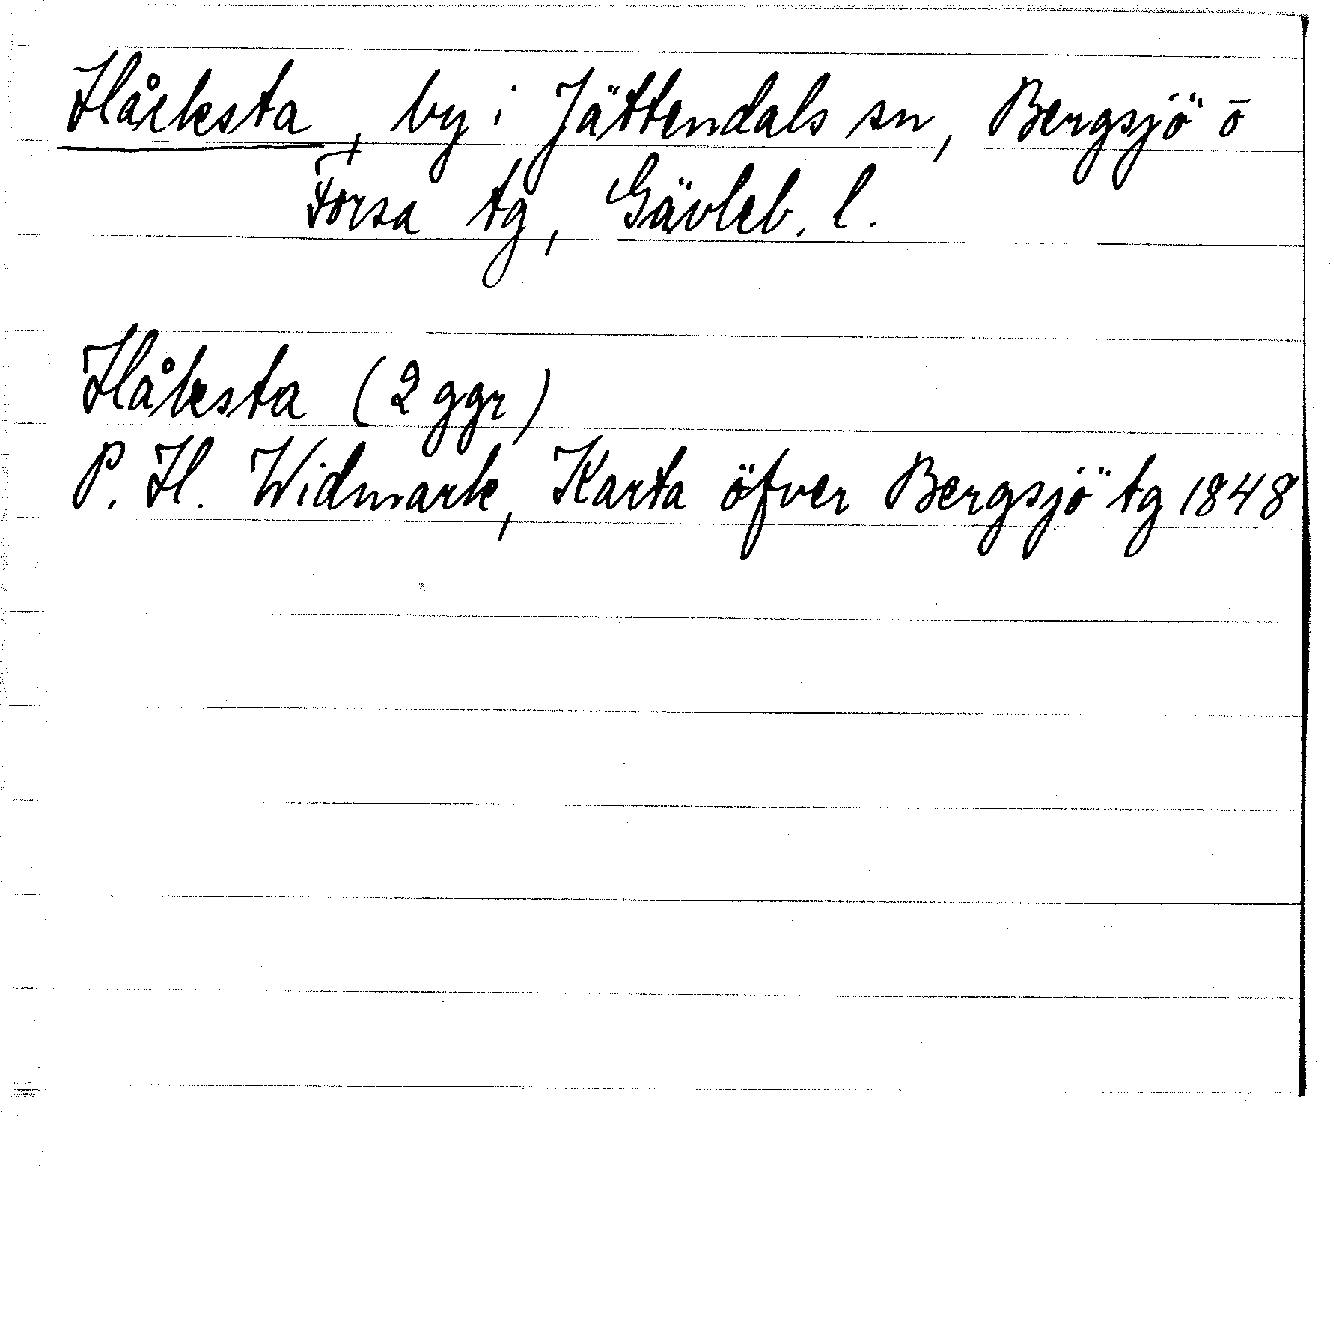 Hårksta, by i Jättendals sn, Bergsjö ō
Forsa tg, Gävleb. l.
Håksta (2 ggr)
P. H. Widmark, Karta öfver Bergsjö tg 1848